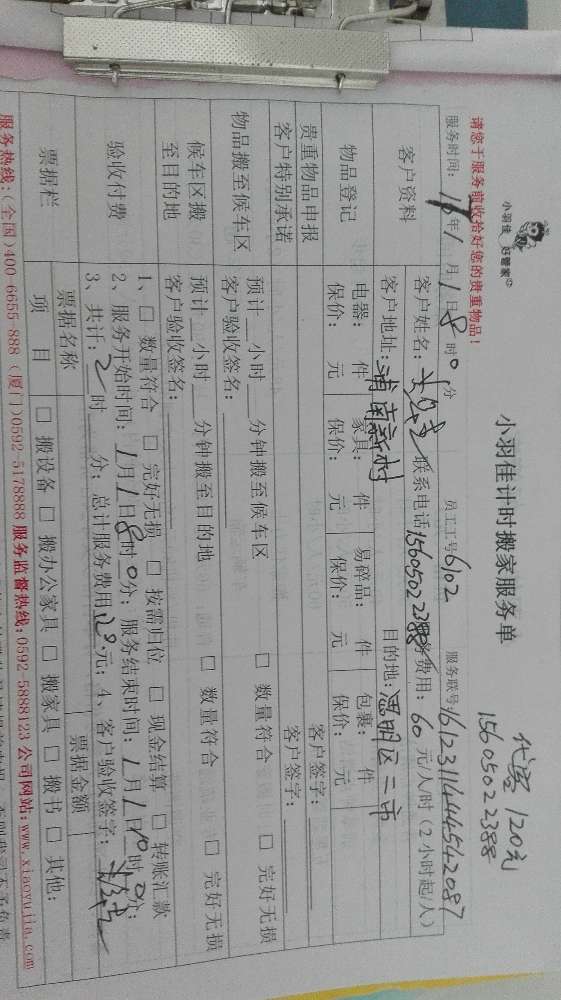 代签 120元
15605022388
小羽佳 好管家
小羽佳计时搬家服务单
请您于服务前收拾好您的贵重物品!
服务时间: 16年1月1日8时0分 员工工号6102 服务联号:161231144454 2087
客户资料 客户姓名: 联系电话15605022388 费用: 60 元/人/时 (2小时起/人)
客户地址: 浦南新村 目的地: 思明区二市
物品登记 电器: 件 家具: 件 易碎品: 件 包裹: 件
保价: 元 保价: 元 保价: 元 保价: 元
贵重物品申报 客户签字:
客户特别承诺 客户签字:
物品搬至候车区 预计__小时__分钟搬至候车区 □ 数量符合 □ 完好无损
客户验收签名:
候车区搬至目的地 预计__小时__分钟搬至目的地 □ 数量符合 □ 完好无损
客户验收签名:
验收付费 1、□ 数量符合 □ 完好无损 □ 按需归位 □ 现金结算 □ 转账汇款
2、服务开始时间: 1月1日8时0分; 服务结束时间: 1月1日10时0分;
3、共计: 2时 分; 总计服务费用120元; 4、客户验收签字:
票据栏 票据名称 票据金额
项目 □ 搬设备 □ 搬办公家具 □ 搬家具 □ 搬书 □ 其他:
服务热线: (全国) 400-6655-888 (厦门) 0592-5178888 服务监督热线: 0592-5888123 公司网站: www.xiaoyujia.com